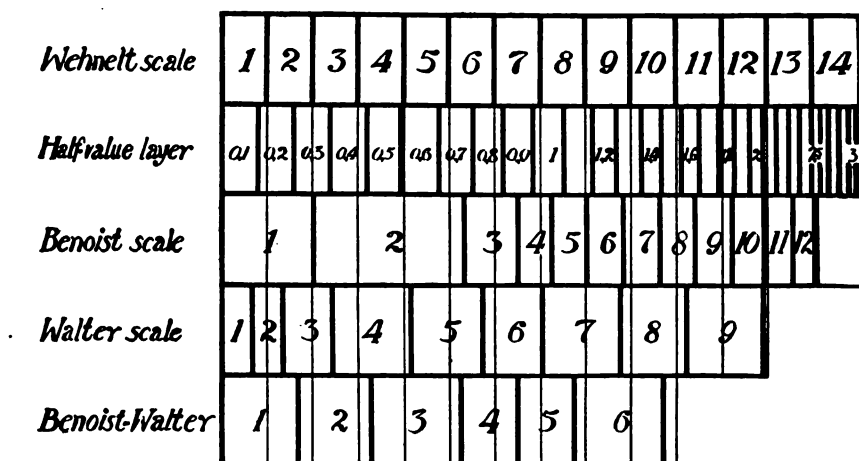 Wehnelt scale 1 2 3 4 5 6 7 8 9 10 11 12 13 14
Half value layer 0,1 0,2 0,3 0,4 0,5 0,6 0,7 0,8 0,9 1 1,2 1,4 1,6 2 3
Benoist scale 1 2 3 4 5 6 7 8 9 10 11 12
Walter scale 1 2 3 4 5 6 7 8 9
Benoist-Walter 1 2 3 4 5 6